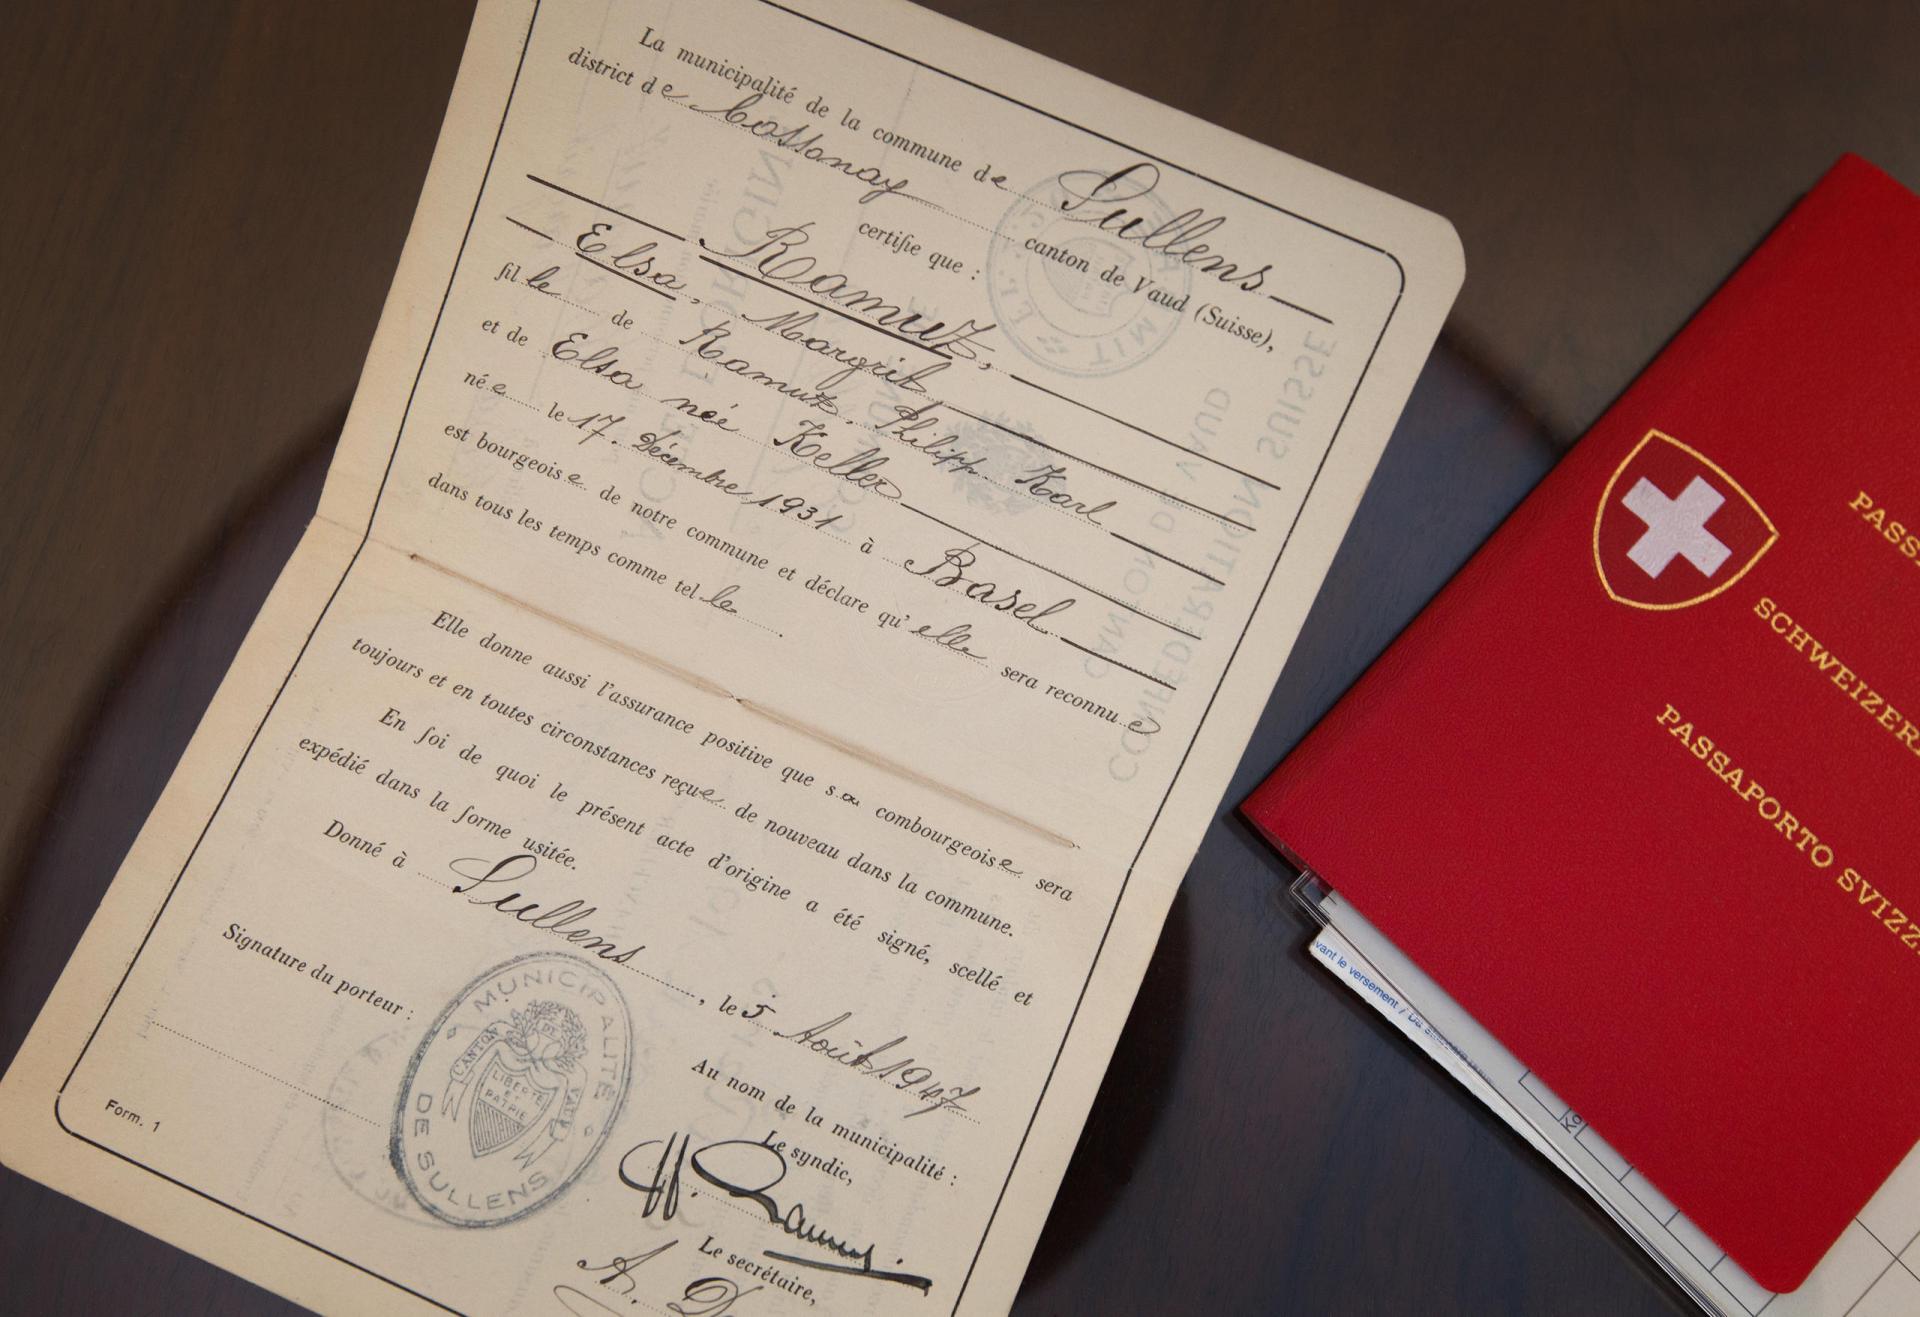 La municipalité de la commune de Sullens
district de Cossonay canton de Vaud (Suisse),
certifie que :
Ramuz,
Elsa, Margrit
fille de Ramuz, Philipp Karl
et de Elsa née Keller
née le 17. Décembre 1931 à Basel
est bourgeoise de notre commune et déclare qu'elle sera reconnue
dans tous les temps comme telle.
Elle donne aussi l'assurance positive que sa combourgeoise sera
toujours et en toutes circonstances reçue de nouveau dans la commune.
En foi de quoi le présent acte d'origine a été signé, scellé et
expédié dans la forme usitée.
Donné à Sullens, le 5 Août 1947
Signature du porteur :
Au nom de la municipalité :
Le syndic,
Le secrétaire,
A.
Form. 1
MUNICIPALITÉ
DE SULLENS
CANTON DE VAUD
LIBERTÉ
ET
PATRIE
CONFÉDÉRATION SUISSE
CANTON DE VAUD
ACTE D'ORIGINE
PASS
SCHWEIZER
PASSAPORTO SVIZZ
vant le versement /